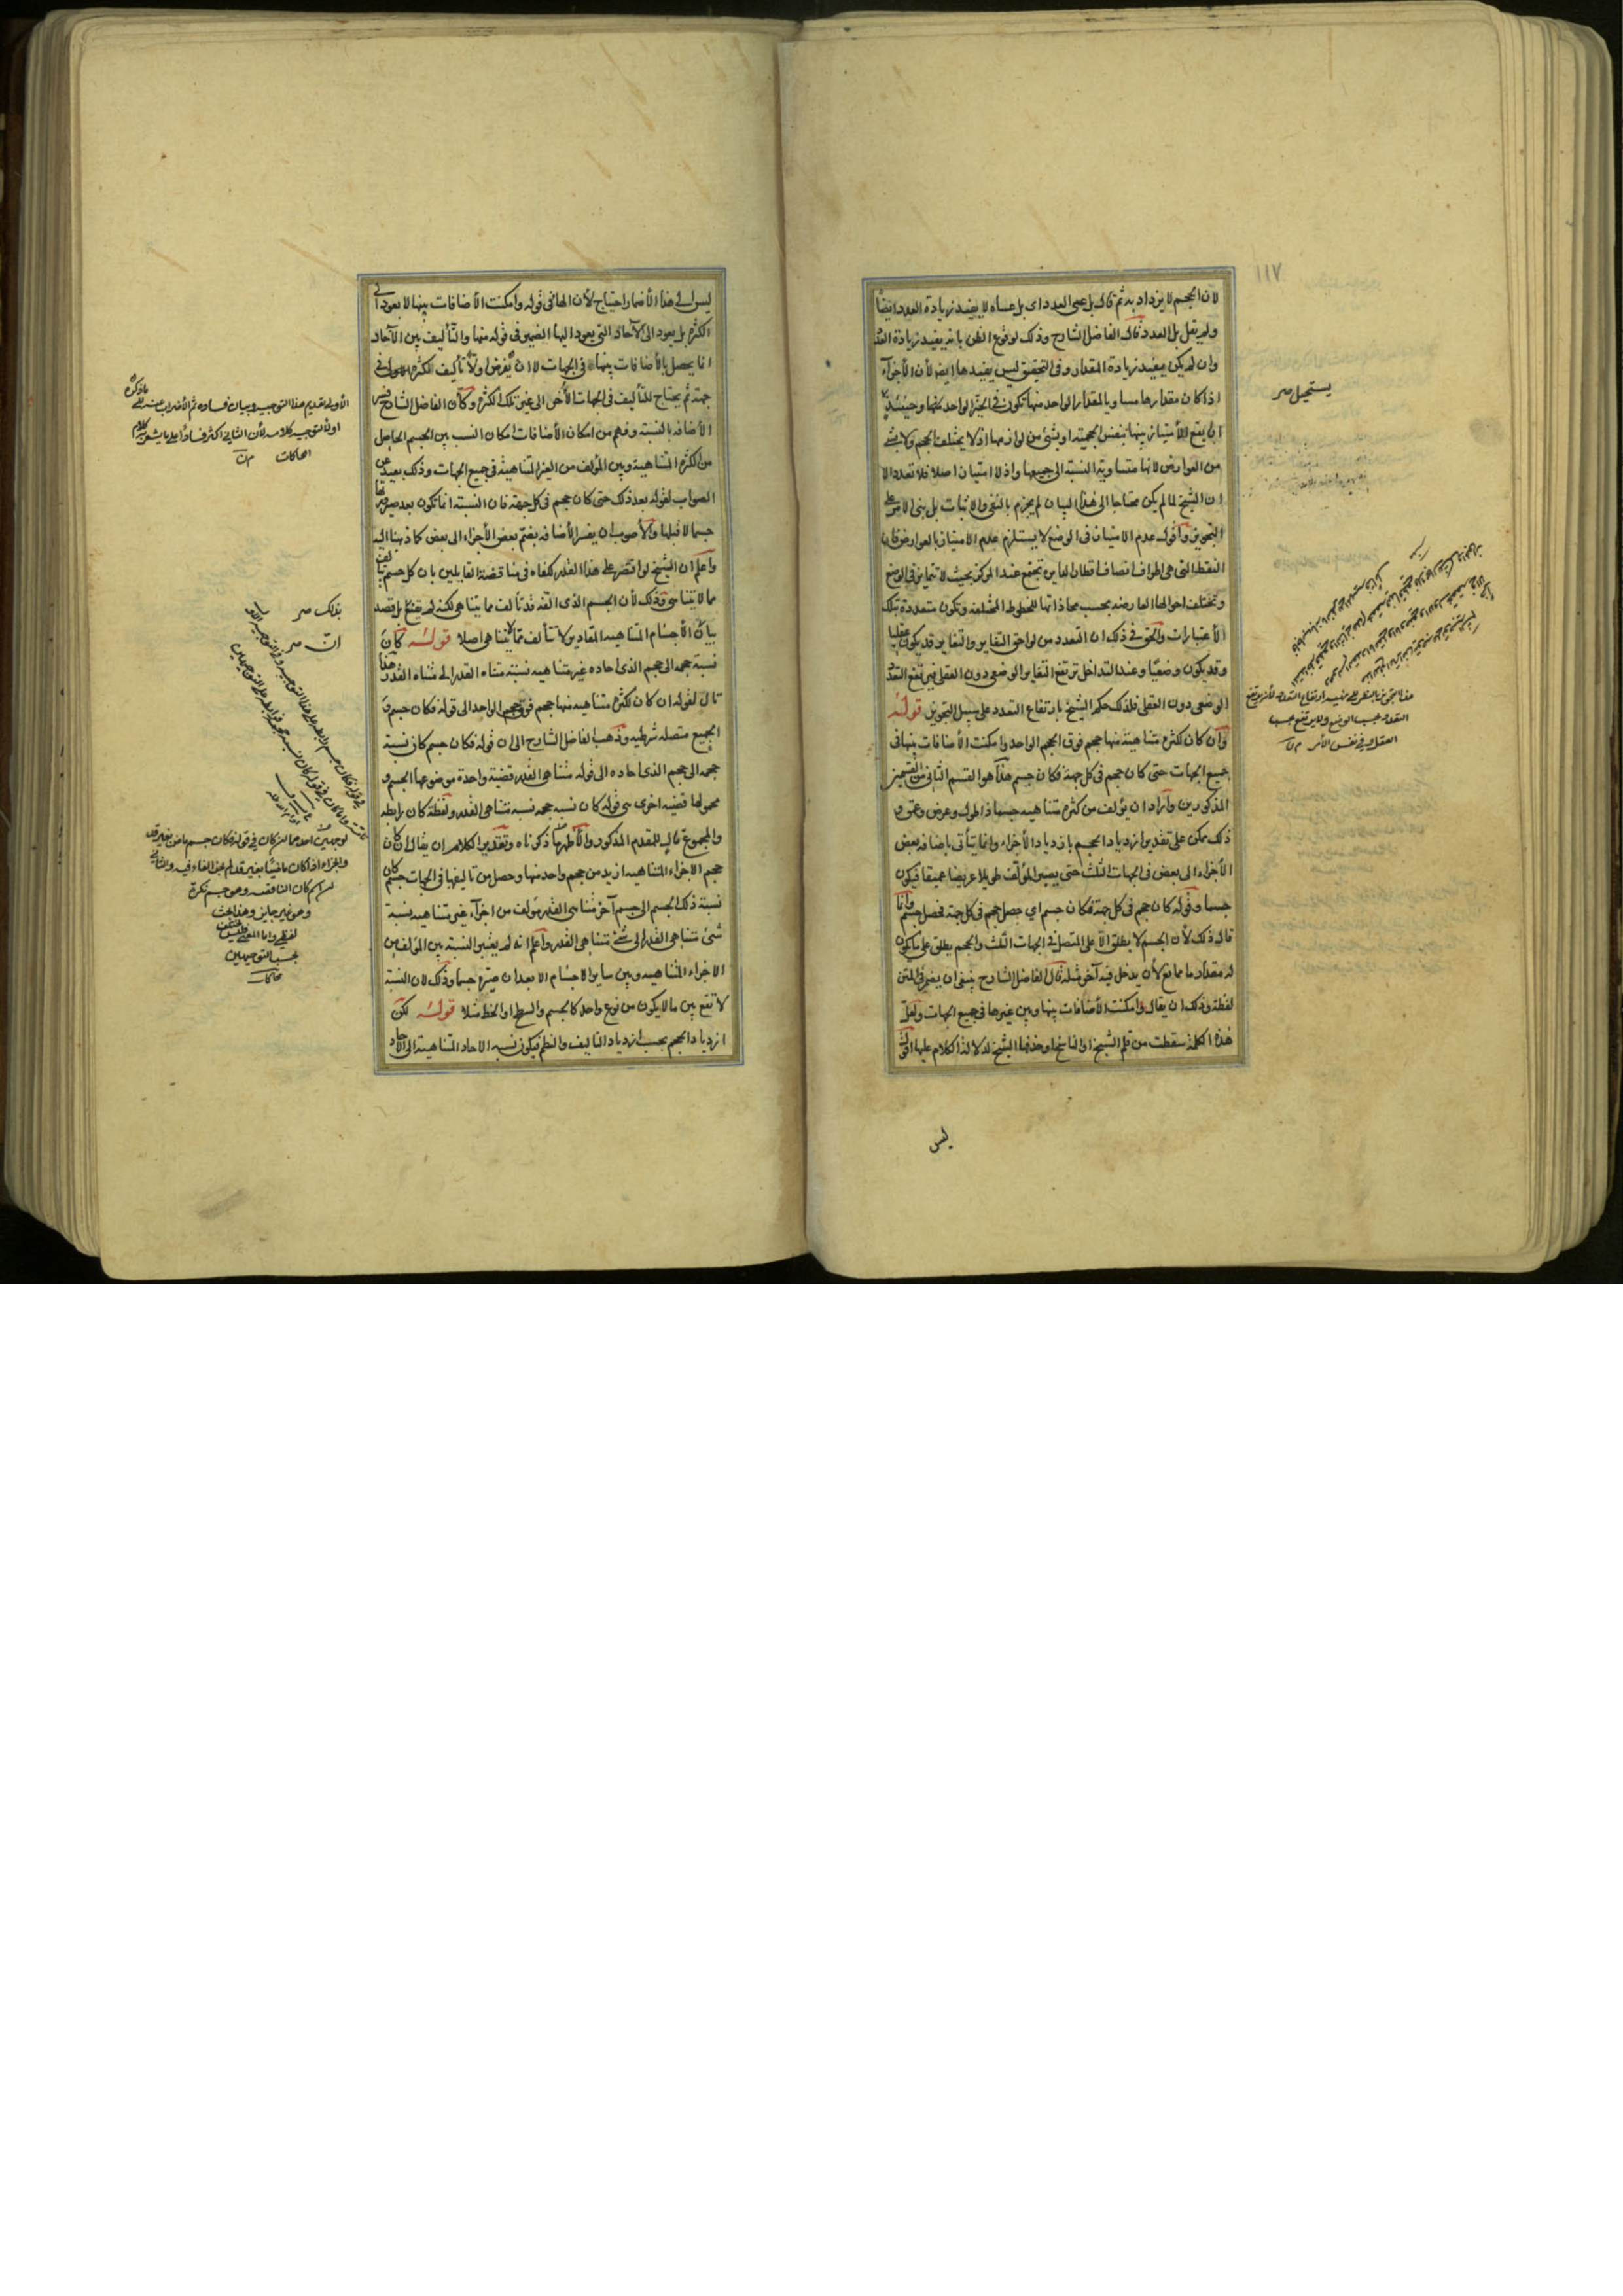 ١١٧
لان الحجم لا يزداد به ثم قال بل عسى العدد اى بل عساه لا يفيد زيادة العدد ايضًا
ولم يقل بل العدد قال الفاضل الشارح وذلك لوقوع الظن بانه يفيد زيادة العدد
وان لم يكن يفيد زيادة المقدار وفى التحقيق ليس يفيدها ايضا لأن الأجزاء
اذا كان مقدارها مساويا لمقدار الواحد منها تكون فى الحيز الواحد منها وحينئذ
ان يقع الامتياز بينها بنفس الحجمية او بشئ من لوازمها اذ لا يختلف الحجم ولا بشئ
من العوارض لانها متساوية النسبة الى جميعها واذ لا امتياز اصلا فلا تعدد الا
ان الشيخ لما لم يكن محتاجا الى هذا البيان لم يجزم بالنفى والاثبات بل بنى الامر على
التجويز وأقول عدم الامتياز فى الوضع لا يستلزم عدم الامتياز بالعوارض فان
النقط التى هى اطراف انصاف اقطار الدايرة تجتمع عند المركز بحيث لا تتمايز فى الوضع
وتختلف احوالها العارضه بحسب محاذاتها للخطوط المختلفه وتكون متعددة بتلك
الأعتبارات والحق فى ذلك ان التعدد من لواحق التغاير والتغاير قد يكون عقليا
وقد يكون وضعيًا وعند التداخل ترتفع التغاير الوضعى دون العقلى فيرتفع التعدد
الوضعى دون العقلى فلذلك حكم الشيخ بارتفاع التعدد على سبيل التجويز قوله
وان كان كثرة متناهية منها حجم فوق الحجم الواحد وامكنت الأضافات بينها فى
جميع الجهات حتى كان حجم فى كل جهة فكان جسم هذا هو القسم الثانى من القسمين
المذكورين وأراد ان يؤلف من كثره متناهيه جسما ذا طول وعرض وعمق و
ذلك ممكن على تقدير ازدياد الحجم بازدياد الأجزاء وانما يتأتى باضافه بعض
الأجزاء الى بعض فى الجهات الثلث حتى يصير المؤلف طويلا عريضا عميقا فيكون
جسما وقوله كان حجم فى كل جهة فكان جسم اى حصل حجم فى كل جهة فحصل جسم وانما
قال ذلك لأن الجسم لا يطلق الا على المتصل فى الجهات الثلث والحجم يطلق على ما يكون
له مقدار ما مانع لأن يدخل فيه آخر مثله قال الفاضل الشارح ينبغى ان يضمر فى المتن
لفظة وذلك ان يقال وامكنت الأضافات بينها وبين غيرها فى جميع الجهات ولعل
هذه الكلمة سقطت من قلم الشيخ او الناسخ او حذفها الشيخ لدلالة الكلام عليها اقول
ليس
يستحيل صر
هذا التجويز بالنظر الى
التعدد بحسب الوضع ولا يرتفع بحسب
العقل وفى نفس الأمر
ليس الى هذا الأضمار احتياج لأن الهاء فى قوله وامكنت الأضافات بينها لا يعود الى
الكثره بل يعود الى الآحاد التى يعود اليها الضمير فى قوله منها والتأليف بين الآحاد
انما يحصل بالأضافات بينها فى الجهات لا ان يفرض اولا تأليف الكثره فى
جهة ثم يحتاج للتأليف فى الجهات الأخرى الى غير تلك الكثره وكأن الفاضل الشارح فسر
الأضافه بالنسبة وفهم من امكان الأضافات امكان النسب بين الجسم الحاصل
من الكثره المتناهية وبين المؤلف من الغير المتناهية فى جميع الجهات وذلك بعيد عن
الصواب لقوله بعد ذلك حتى كان حجم فى كل جهة فان النسبة انما تكون بعد صيرورتها
جسما لا قبلها والأصوب ان يفسر الأضافه بضم بعض الأجزاء الى بعض كما ذهبنا اليه
واعلم ان الشيخ لو اقتصر على هذا القدر لكفاه فى مناقضة القايلين بان كل جسم تألف
مما لا يتناهى وذلك لأن الجسم الذى الفه قد تألف مما يتناهى لكنه لم يقنع بل قصد
بيان الأجسام المتناهيه المقادير لا تتألف مما لا يتناهى اصلا قوله كان
نسبة حجمه الى حجم الذى آحاده غير متناهيه نسبة متناه القدر الى متناه القدر هذا
تال لقوله ان كان لكثرة متناهيه منها حجم فوق حجم الواحد الى قوله فكان جسم و
الجميع متصله شرطيه وذهب الفاضل الشارح الى ان قوله فكان جسم كان نسبة
حجمه الى حجم الذى آحاده الى قوله متناهى القدر قضية واحدة موضوعها الجسم و
محمولها قضيه اخرى هى قوله كان نسبه حجمه نسبه متناهى القدر ولفظة كان رابطه
والمجموع تال للمقدم المذكور والأظهر ما ذكرناه وتقدير الكلام ان يقال ان كان
حجم الاجزاء المتناهيه ازيد من حجم واحد منها وحصل من تاليفها فى الجهات جسم كان
نسبة ذلك الجسم الى جسم آخر متناهى القدر مؤلف من اجزاء غير متناهيه نسبة
شئ متناهى القدر الى شئ متناهى القدر واعلم انه لم يعتبر النسبة بين المؤلف من
الاجزاء المتناهيه وبين ساير الاجسام الا بعد ان صيّره جسما وذلك لان النسبة
لا تقع بين ما لا يكون من نوع واحد كالجسم والسطح او الخط مثلا قوله لكن
ازدياد الحجم بحسب ازدياد التاليف والنظم فيكون نسبه الاحاد المتناهية الى الاحاد
الأولى تقديم هذا التوجيه وبيان فساده ثم
بذلك صر
ان صر
وهو غير جايز وهذا بحث
لفظى واما المعنى فليس يختلف
بحسب التوجيهين
محاكمات